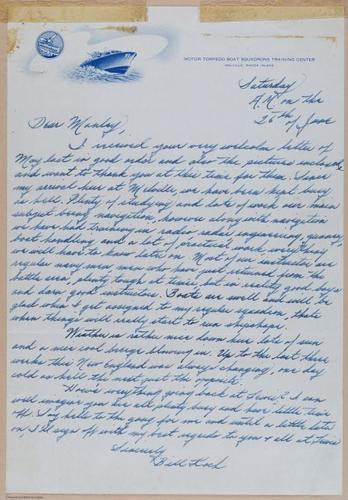 MOTOR TORPEDO BOAT SQUADRONS TRAINING CENTER
MELVILLE, RHODE ISLAND
Saturday
on the
26th of June
Dear Manley,
I received your very welcome letter of
May last in good order and also the pictures enclosed
and want to thank you at this time for them. Since
my arrival here at Melville, we have been kept busy
as hell. Plenty of studying and lots of work our main
subject being navigation, however along with navigation
we have had training in radio, radar, engineering, gunnery,
boat handling and a lot of practical work, everything
we will have to know later on. Most of our instructors are
regular navy men who have just returned from the
battle area, plenty tough at times but in reality good boys
and darn good instructors. Boats are swell and will be
glad when I get assigned to my regular squadron, thats
when things will really start to run shipshape.
Weather is rather nice down here lots of sun
and a nice cool breeze blowing in. Up to the last three
weeks this New England was always changing, one day
cold as hell the next just the opposite.
How's everything going back at I can
well imagine you are all plenty busy and have little time
off. Say hello to the gang for me and until a little later
on, I'll sign off with my best regards to you & all at
Sincerely
Bill